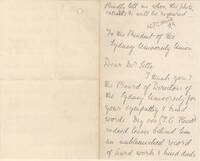 Kindly tell me when the photo
will be required
To the President of the
Sydney University Union
Dear Mr
I thank you &
the Board of Directors of
the Sydney University for
your sympathy & kind
words. My son
has left behind him
an unblemished record
of hard work & kind deeds